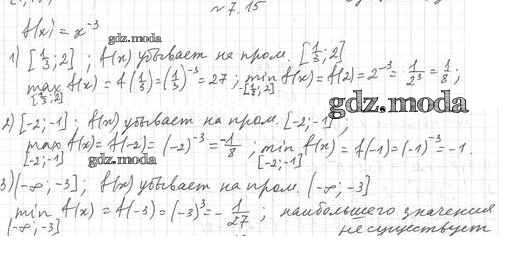 № 7.15
f(x) = x⁻³
gdz.moda
1) [1/3; 2]; f(x) убывает на пром. [1/3; 2]
max f(x) = f(1/3) = (1/3)⁻³ = 27; min f(x) = f(2) = 2⁻³ = 1/2³ = 1/8;
[1/3; 2] [1/3; 2]
gdz.moda
2) [-2; -1]; f(x) убывает на пром. [-2; -1];
max f(x) = f(-2) = (-2)⁻³ = -1/8; min f(x) = f(-1) = (-1)⁻³ = -1.
[-2; -1] gdz.moda [-2; -1]
3) (-∞; -3]; f(x) убывает на пром. (-∞; -3]
min f(x) = f(-3) = (-3)³ = - 1/27; наибольшего значения
(-∞; -3] не существует